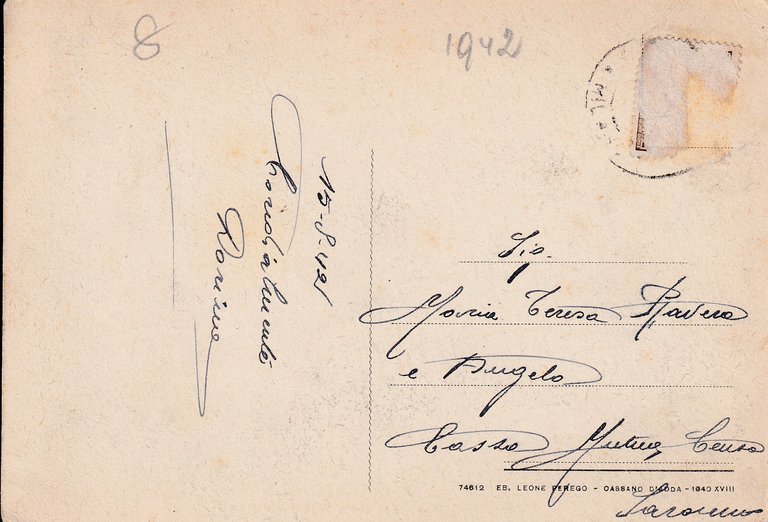 8
1942
15-8-42
Cordialmente
Sig.
Maria Teresa Ravera
e Angelo
Cassa Mutua
Saronno
74612 EB. LEONE PEREGO - CASSANO D'ADDA - 1940 XVIII